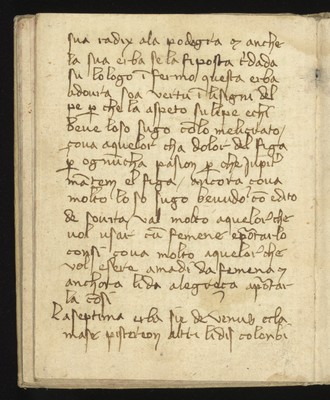 sua radix ala podagra & anche
la sua erba se la fiposta c̄dada
su lo logo ifermo questa erba
adovra soa vertu i lisigni del
pe p̱ che la aspeto sulipe echi
beue loso sugo cōlo meligrato/
çoua aquelor cha dolor del figa
p̱ ognūcha pasion p̱ che jupil
mātem el figa / ancora çoua
molto lo so sugo beuudo co edito
de sovita / val molto aquelor che
vol vsar cū femene eportarlo
consi çoua molto aquelor che
vol esere amadi da femena &
anchora lida alegreça aportar
la cosi
La septima erba sie de venus ecla
mase pistereon altri lidis colonbi